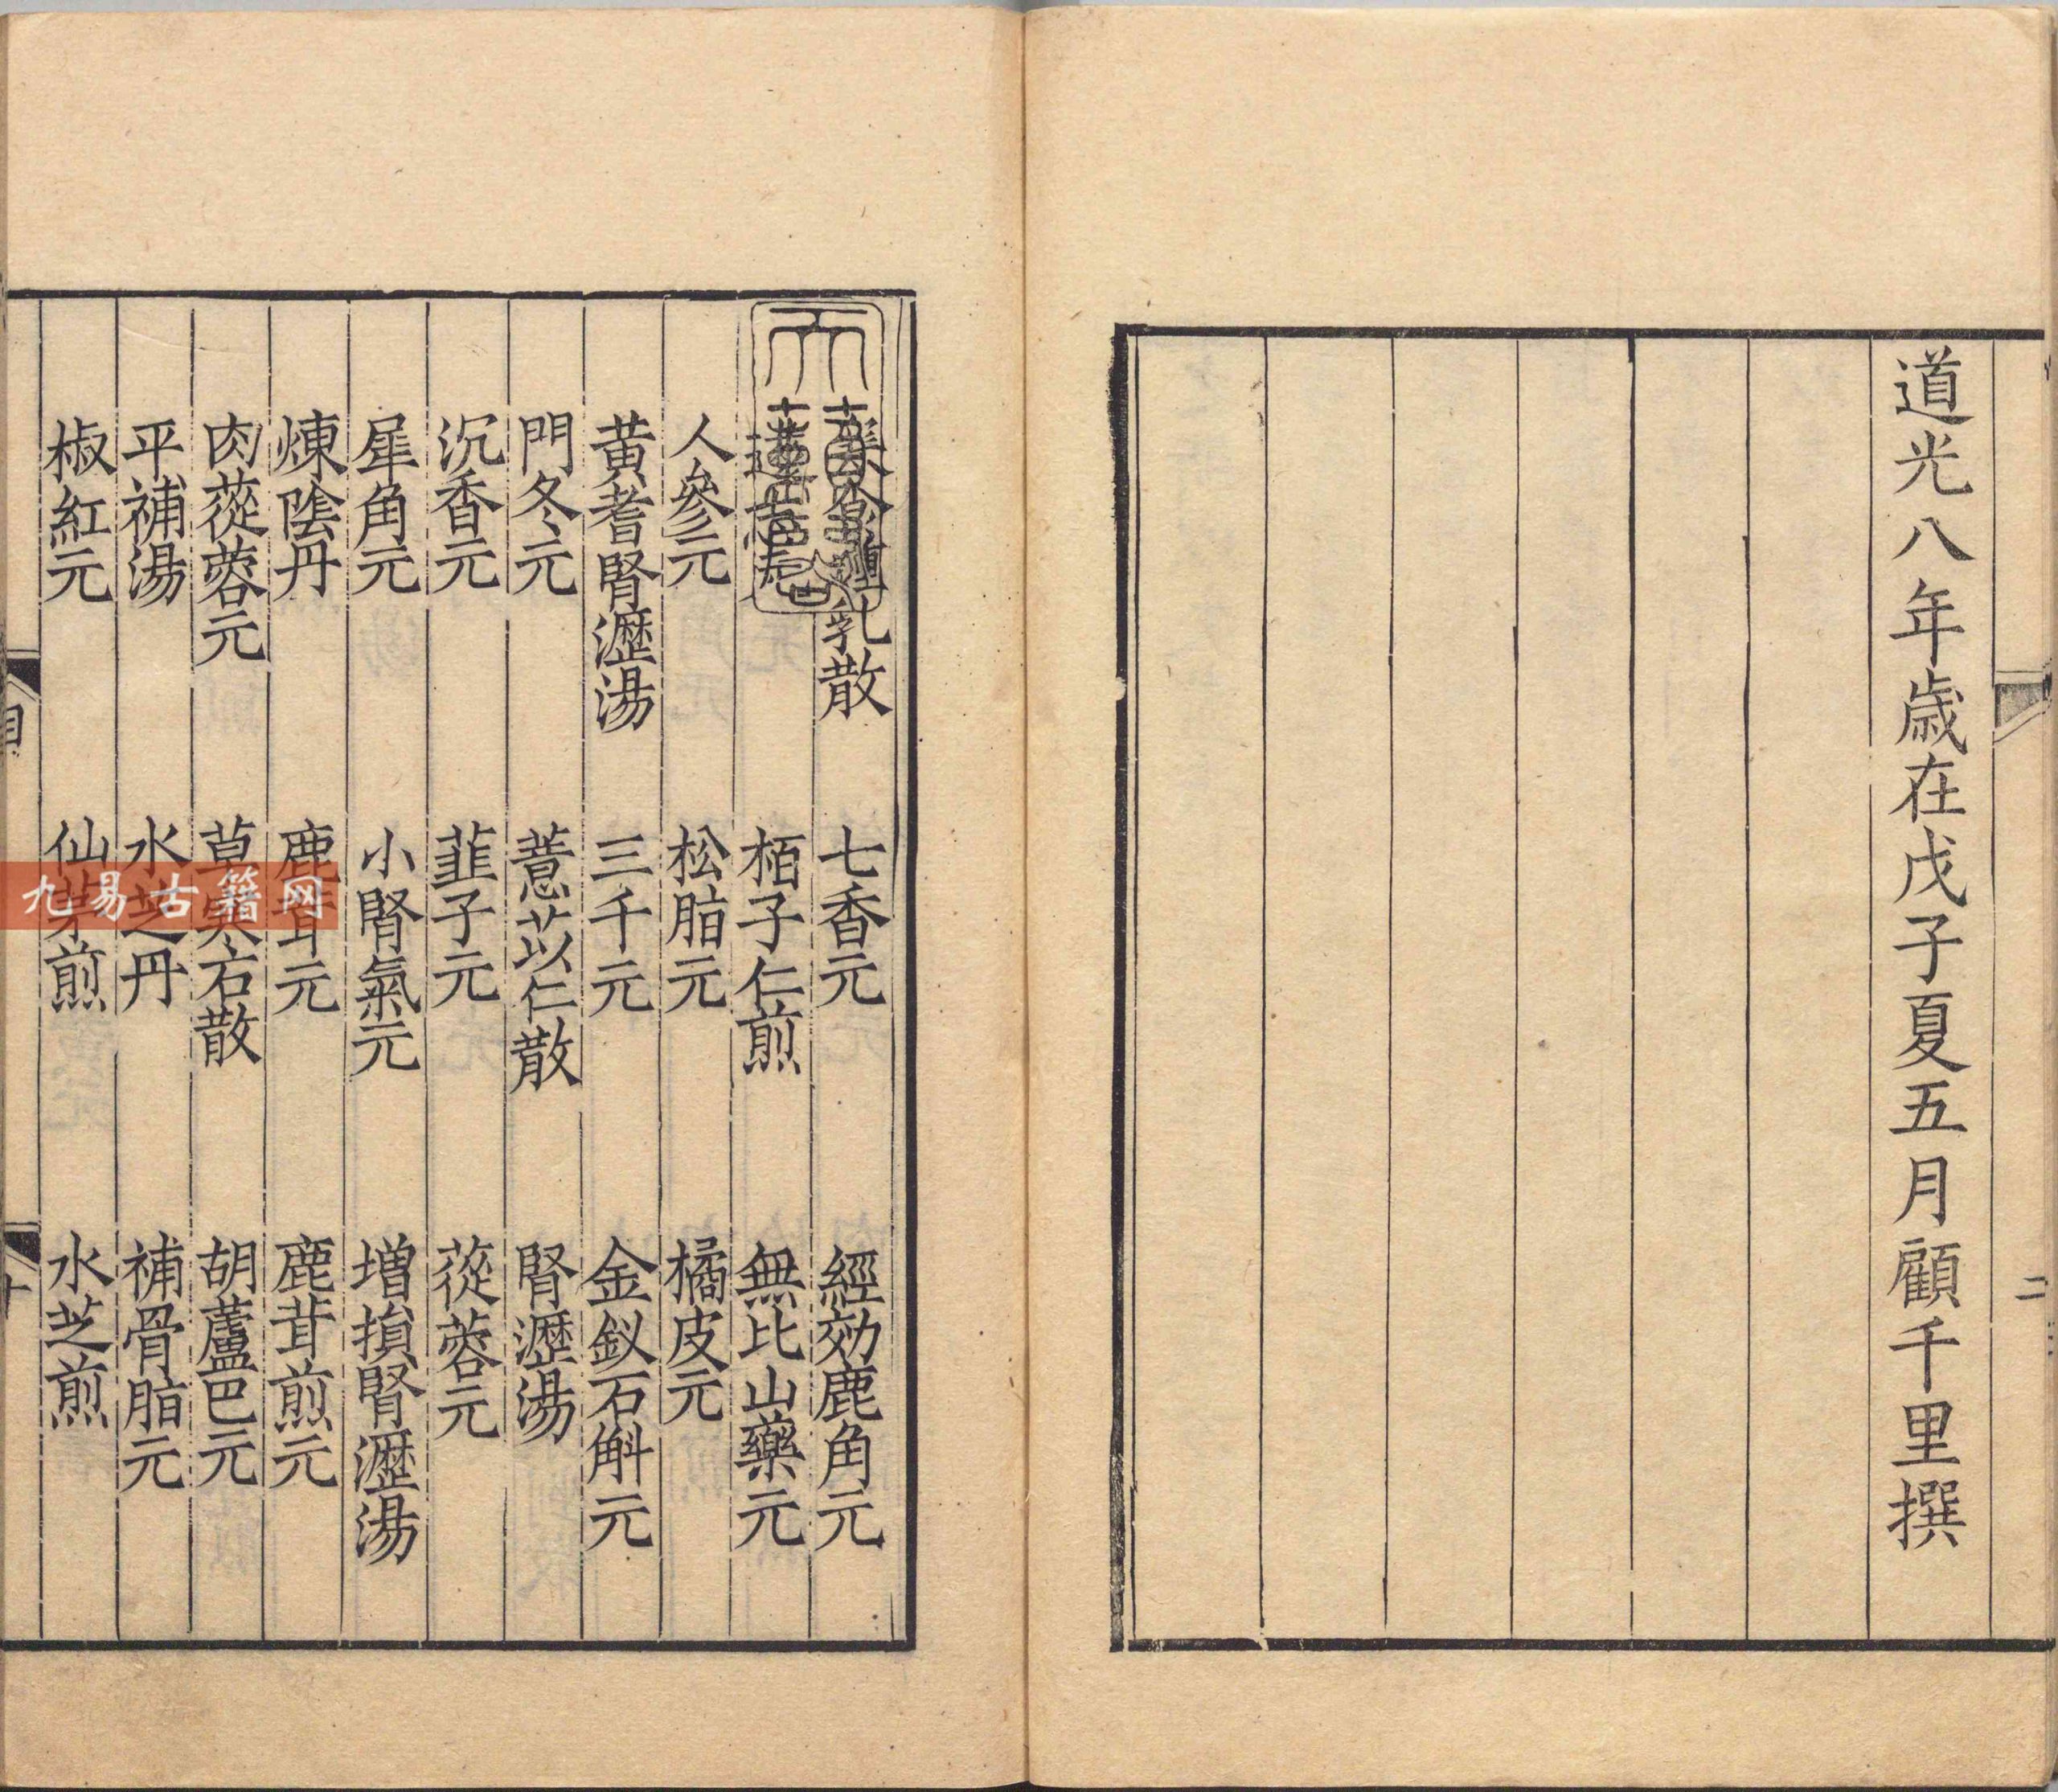 道光八年歲在戊子夏五月顧千里撰
二
乳散　七香元　經効鹿角元
栢子仁煎　無比山藥元
人參元　松脂元　橘皮元
黃耆腎瀝湯　三千元　金釵石斛元
門冬元　薏苡仁散　腎瀝湯
沉香元　韭子元　蓯蓉元
犀角元　小腎氣元　增損腎瀝湯
煉陰丹　鹿茸元　鹿茸煎元
肉蓯蓉元　草寒石散　胡蘆巴元
平補湯　水芝丹　補骨脂元
椒紅元　仙茅煎　水芝煎
目
九易古籍网